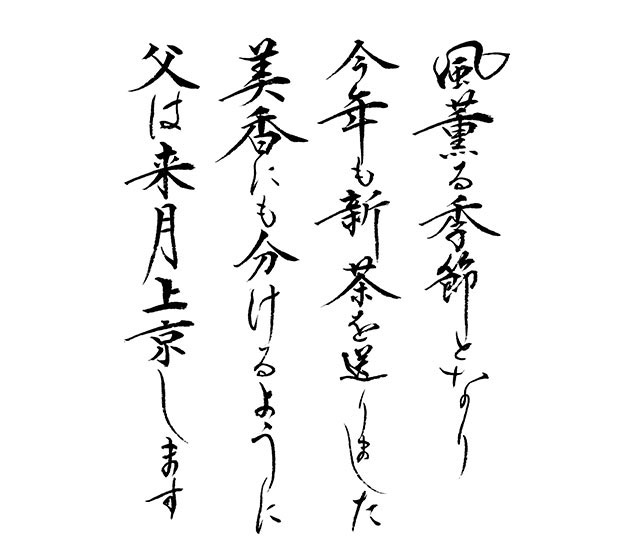 風薫る季節となり
今年も新茶を送りました
美香にも分けるように
父は来月上京します